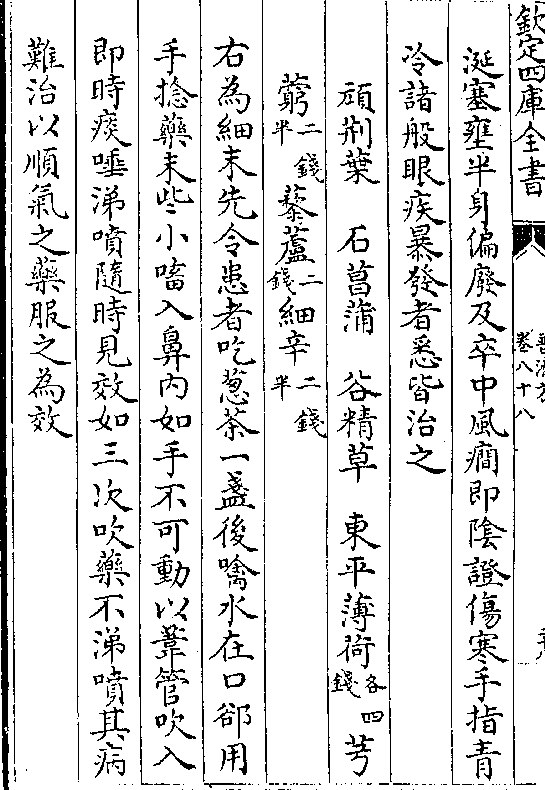 欽定四庫全書
卷八十八
涎塞壅半身偏廢及卒中風癇即陰證傷寒手指青
冷諸般眼疾暴發者悉皆治之
頑荆葉 石菖蒲 谷精草 東平薄荷各四錢 芎
藭二錢半 藜蘆二錢 細辛二錢半
右為細末先令患者吃葱茶一盞後噙水在口郤用
手捻藥末些小㗜入鼻内如手不可動以葦管吹入
即時痰唾涕噴隨時見效如三次吹藥不涕噴其病
難治以順氣之藥服之為效